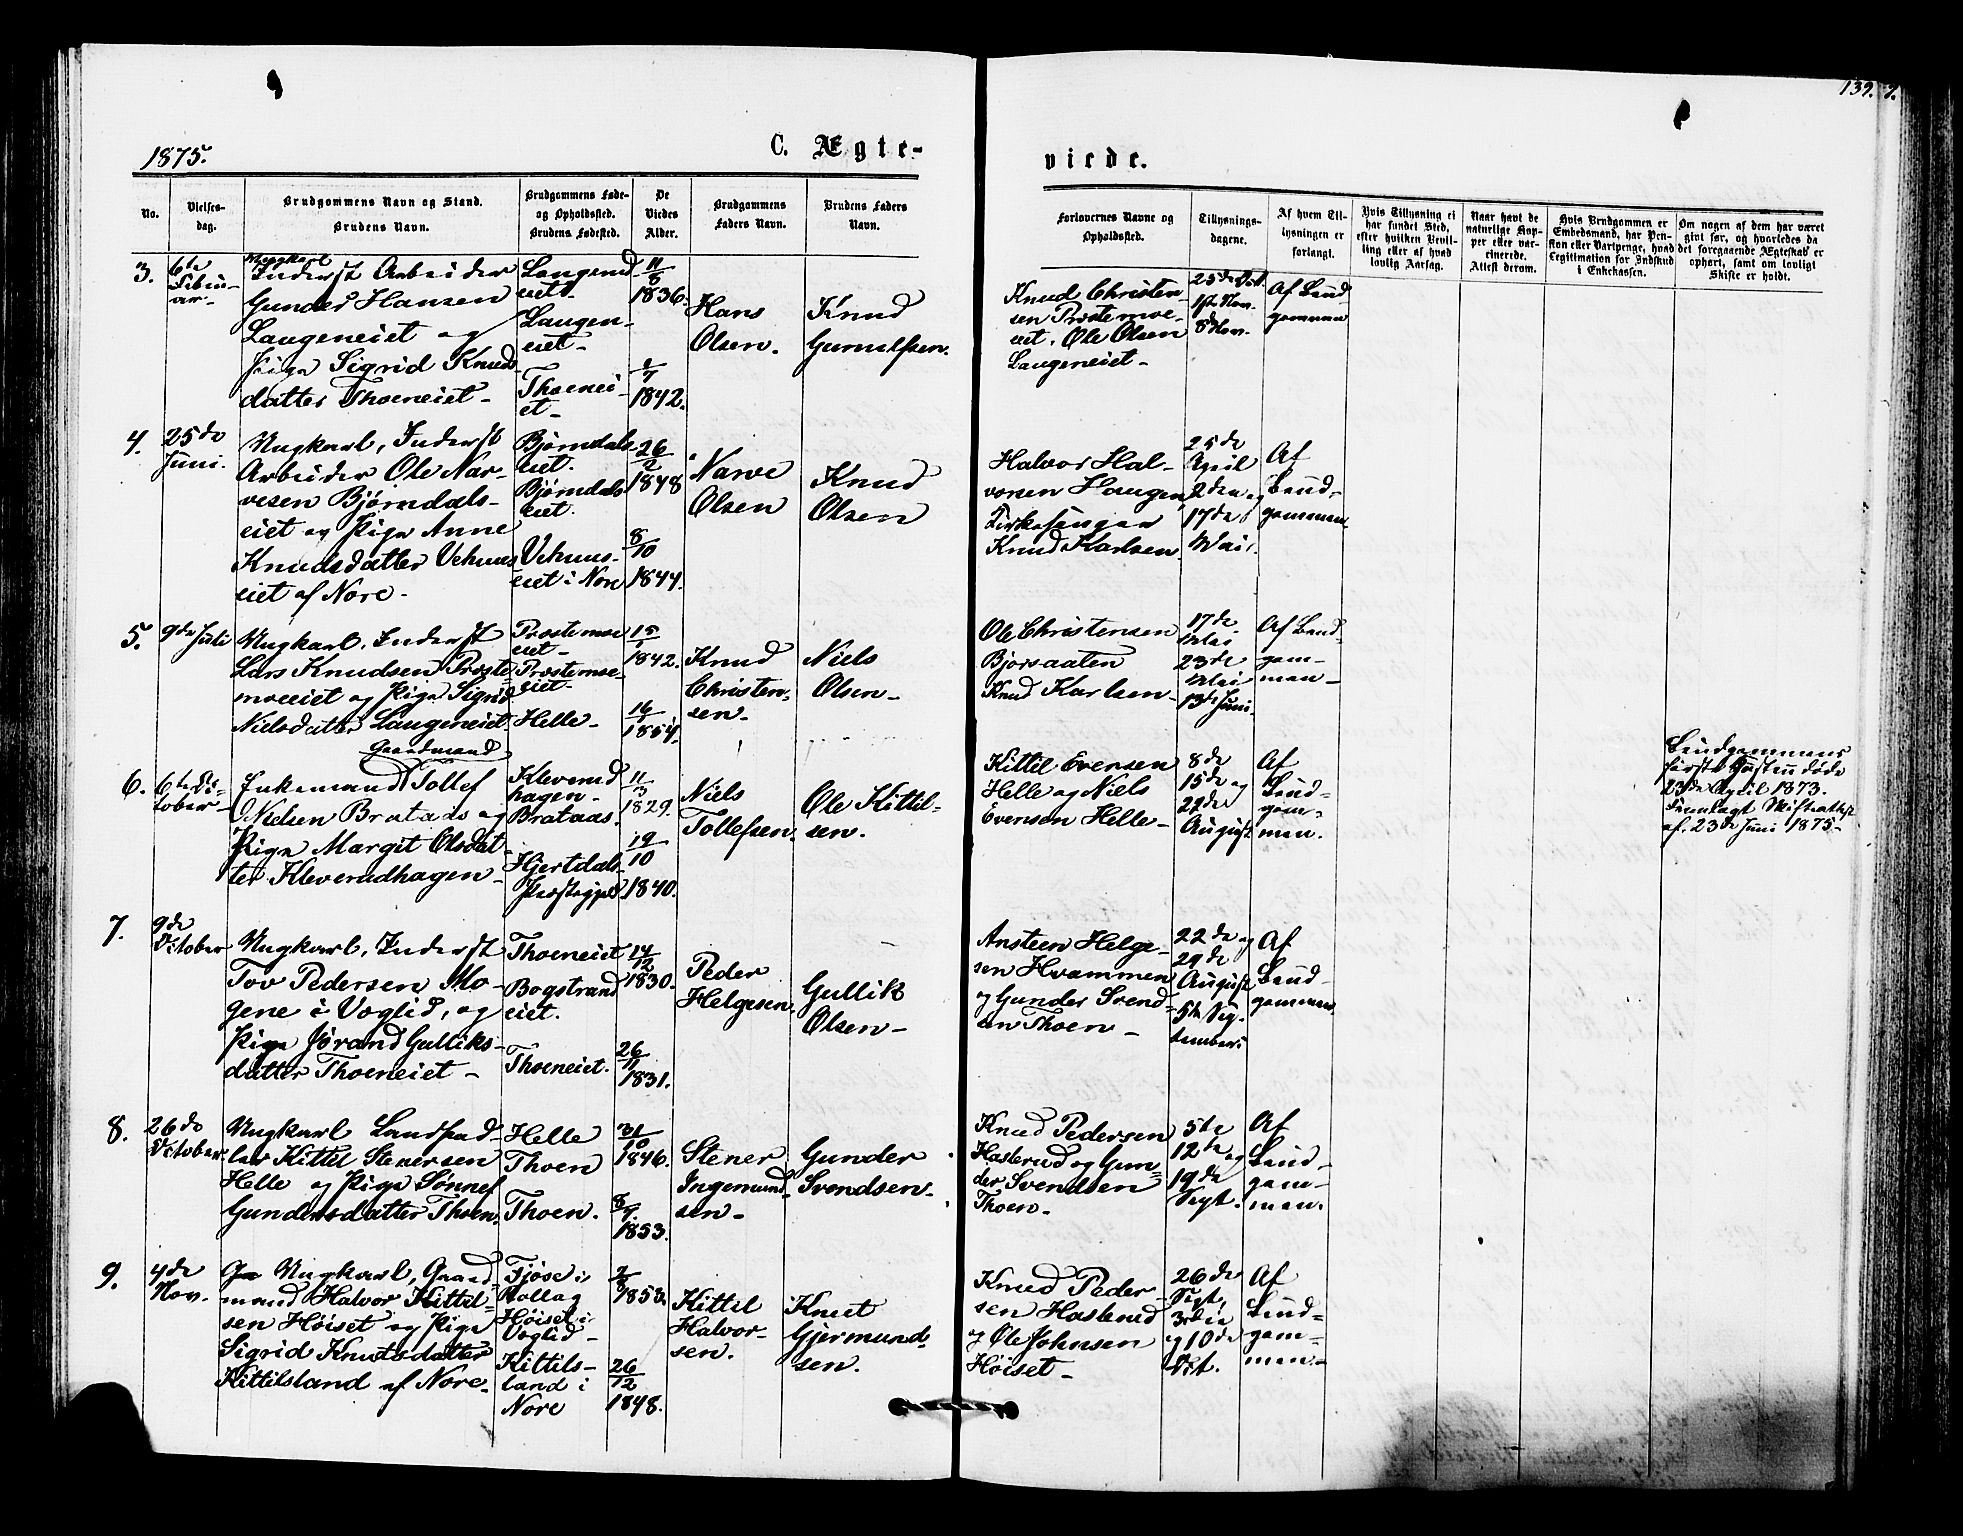 139.
1875.
C. Ægte-
viede.
No.
Vielses-
dag.
Brudgommens Navn og Stand.
Brudens Navn.
Brudgommens Føde-
og Opholdssted.
Brudens Fødested.
De
Viedes
Alder.
Brudgommens
Faders Navn.
Brudens Faders
Navn.
Forlovernes Navne og
Opholdssted.
Tillysnings-
dagene.
Af hvem Til-
lysningen er
forlangt.
Hvis Tillysning ei
har fundet Sted,
efter hvilken Bevil-
ling eller af hvad
lovlig Aarsag.
Naar havt de
naturlige Kop-
per eller var-
cinerede.
Attest derom.
Hvis Brudgommen er
Embedsmand, har Pen-
sion eller Vartpenge, hvad
Legitimation for Indskud
i Enkekassen.
Om nogen af dem har været
gift før, og hvorledes da
det foregaaende Ægteskab er
ophørt, samt om lovligt
Skifte er holdt.
3.
6te
Februar-
ar-
Ungkarl
Inderst Arbeider
Gunder Hansen
Laugeneiet og
Pige Sigrid Knuds-
datter Thoeneiet-
Laugend
eiet-
Laugen-
eiet-
Thoenei-
et-
11/8
1836.
1842.
Hans
Olsen.
Knud
Gunulfsen.
Knud Christen-
sen Prostemoe-
eiet. Ole Olsen
Laugeneiet-
25de Oct.
1ste Nov.
8de Nov.
Af Brud
gommen
4.
25de
Juni.
Ungkarl, Inderst
Arbeider Ole Nar-
vesen Bjørndals-
eiet og Pige Anne
Knudsdatter Vehuus
eiet af Nore-
Bjørndals-
eiet.
Bjørndals
eiet.
Vehuus-
eiet i Nore
26/2
1848
8/10
1844.
Narve
Olsen
Knud
Olsen
Halvor Hal-
vorsen Haugen,
Kirkesanger
Knud Karlsen.
25de
April
2den og
17de
Mai.
Af
Brud-
gommen
5.
9de Juli
Ungkarl, Inderst
Lars Knudsen Proste-
moeeiet og Pige Sigrid
Nielsdatter Laugeneiet.
Prostemoe
eiet-
Prostemoe-
eiet-
Helle-
1842.
1854.
Knud
Christen-
sen-
Niels
Olsen-
Ole Christensen
Bjørsaaten
Knud Karlsen-
17de
Mai
23de
Mai
13de Juni.
Af Brud-
gom-
man-
6.
6te Oc-
tober-
Gaardmand
Enkemand Tollef
Nielsen Brataas og
Pige Margit Olsdat-
ter Kleverudhagen-
Kleverud
hagen-
Brataas.
Hjertdals-
Præstegjeld
11/3
1829.
19/10
1840.
Niels
Tollefsen.
Ole Kittil-
sen.
Kittil Evensen
Helle og Niels
Evensen Helle-
8de
15de og
22de
August
Af
Brud-
gom-
men.
Brudgommens
første Hustru døde
23de April 1873.
Fremlagt Skifteattest
af. 23de Juni 1875-
7.
9de
October
Ungkarl, Inderst
Tov Pedersen Mo-
gene i Veglid, og
Pige Jørand Gulliks-
datter Thoeneiet-
Thoeneiet
Bogstrand
eiet.
Thoeneiet.
14/12
1830.
26/11
1831.
Peder
Helgesen
Gullik
Olsen-
Ansteen Helge-
sen Hvammen
og Gunder Svend-
sen Thoen-
22de og
29de
August
5te Sep-
tember.
Af
Brud-
gommen
8.
26de
October.
Ungkarl Landhand-
ler Kittil Stenersen
Helle og Pige Sønnef
Gundersdatter Thoen.
Helle
Thoen
Thoen.
31/10
1846.
8/9
1853.
Stener
Ingemund-
sen-
Gunder
Svendsen-
Knud Pedersen
Haslerud og Gun-
der Svendsen
Thoen-
5te
12te og
19de
Sept.
Af
Brud-
gom-
men.
9.
4de
Nov.
Ungkarl, Gaard-
mand Halvor Kittil-
sen Høiset og Pige
Sigrid Knutsdatter
Kittilsland af Nore-
Fjøse i
Rollag
Høiset i
Veglid-
Kittils-
land i
Nore
1853.
26/12
1848.
Kittil
Halvor-
sen.
Knut
Gjermund-
sen.
Knud Peder-
sen Haslerud
og Ole Johnsen
Høiset-
26de
Sept.
3die
og 10de
Oct.
Af
Brud-
gom-
men-